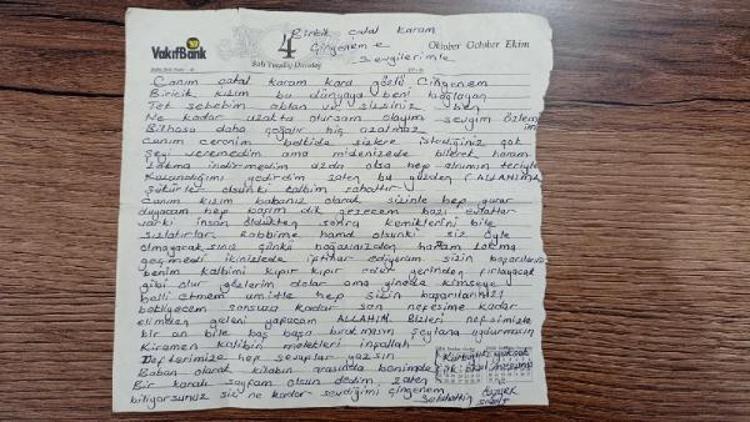 Biricik çatal karam
VakıfBank 4 Çingeneme Oktober October Ekim
Sevgilerimle
Salı Tuesday Dienstag
Canım çatal karam kara gözlü Çingenem
Biricik kızım bu dünyaya beni bağlayan
Tek sebebim ablan ve sizsiniz ben
Ne kadar uzakta olursam olayım sevgim özlemim
Bilhasa daha çoğalır hiç azalmaz
Canım ceronim belkide sizlere istediğiniz çok
Şeyi veremedim ama midenizede bilerek haram
Lokma indirmedim azda olsa hep alnımın teriyle
Kazandığımı yedirdim zaten bu yüzden (ALLAHIMA
Şükürler olsunki kalbim rahattır
Canım kızım babanız olarak sizinle hep gurur
duyacam hep başım dik gezecem bazı evlatlar
varki insan öldükten sonra kemiklerini bile
sızlatırlar Rabbime hamd olsunki siz öyle
olmayacaksınız çünkü boğazınızdan haram lokma
geçmedi ikinizlede iftihar ediyorum sizin başarılarınız
benim kalbimi kıpır kıpır eder yerinden fırlayacak
gibi olur gözlerim dolar ama yinede kimseye
belli etmem umutla hep sizin başarılarınızı
bekliyecem sonsuza kadar son nefesime kadar
elimden geleni yapacam ALLAHIM Bizleri nefsimizle
bir an bile baş başa bırakmasın Şeytana uydurmasın
Kiramen Katibin melekleri inşallah
Defterimize hep sevaplar yazsın
Baban olarak kitabın arasında benimde
Bir karalı sayfam olsun dedim zaten
biliyorsunuz sizi ne kadar sevdiğimi çingenem
Selahattin